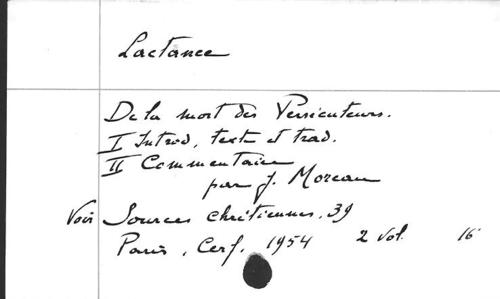 Lactance
De la mort des Persécuteurs.
I Introd, texte et trad.
II Commentaire
par J. Moreau
Voir Sources chrétiennes, 39
Paris, Cerf, 1954 2 vol. 16°